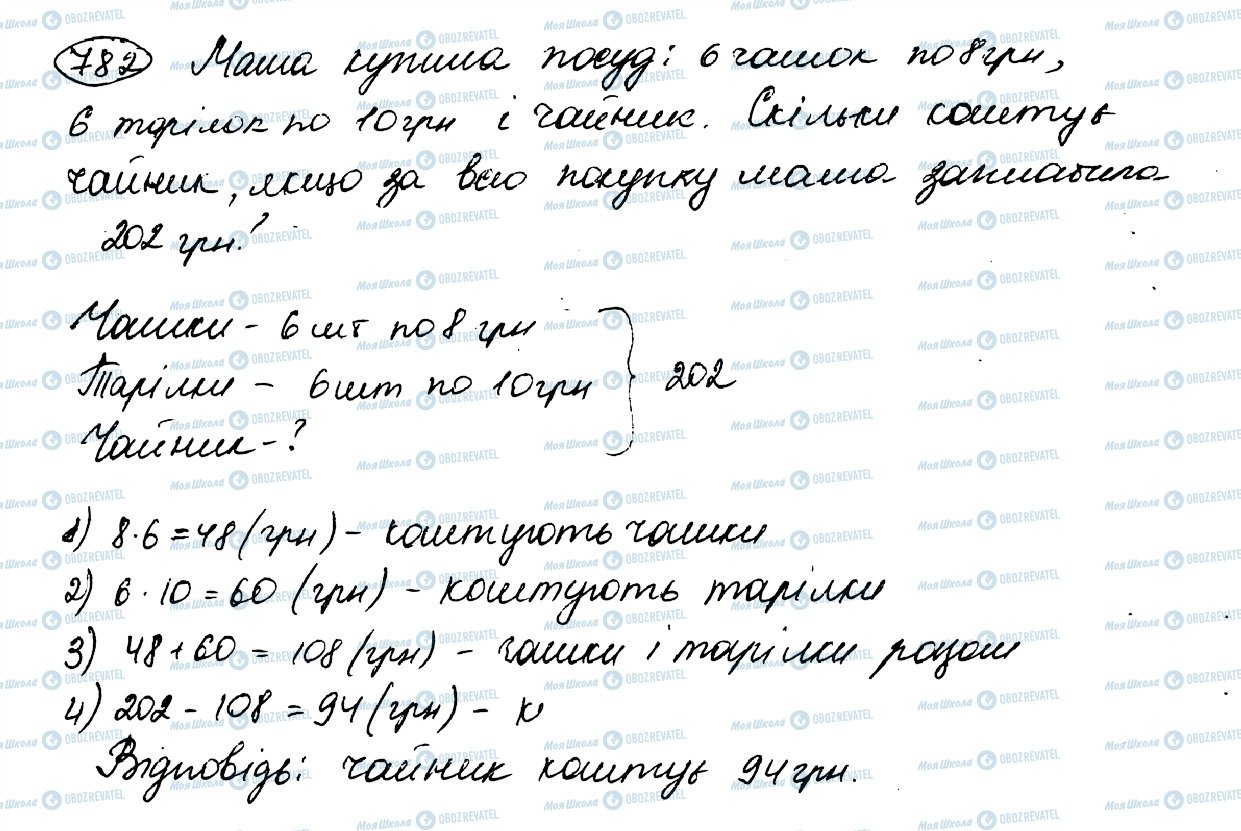 782 Маша купила посуд: 6 чашок по 8 грн,
6 тарілок по 10 грн і чайник. Скільки коштує
чайник, якщо за всю покупку маша заплатила
202 грн?
Чашки - 6 шт по 8 грн
Тарілки - 6 шт по 10 грн } 202
Чайник - ?
1) 8·6=48 (грн) - коштують чашки
2) 6·10=60 (грн) - коштують тарілки
3) 48+60=108 (грн) - чашки і тарілки разом
4) 202-108=94 (грн) - к
Відповідь: чайник коштує 94 грн.
МояШкола OBOZREVATEL